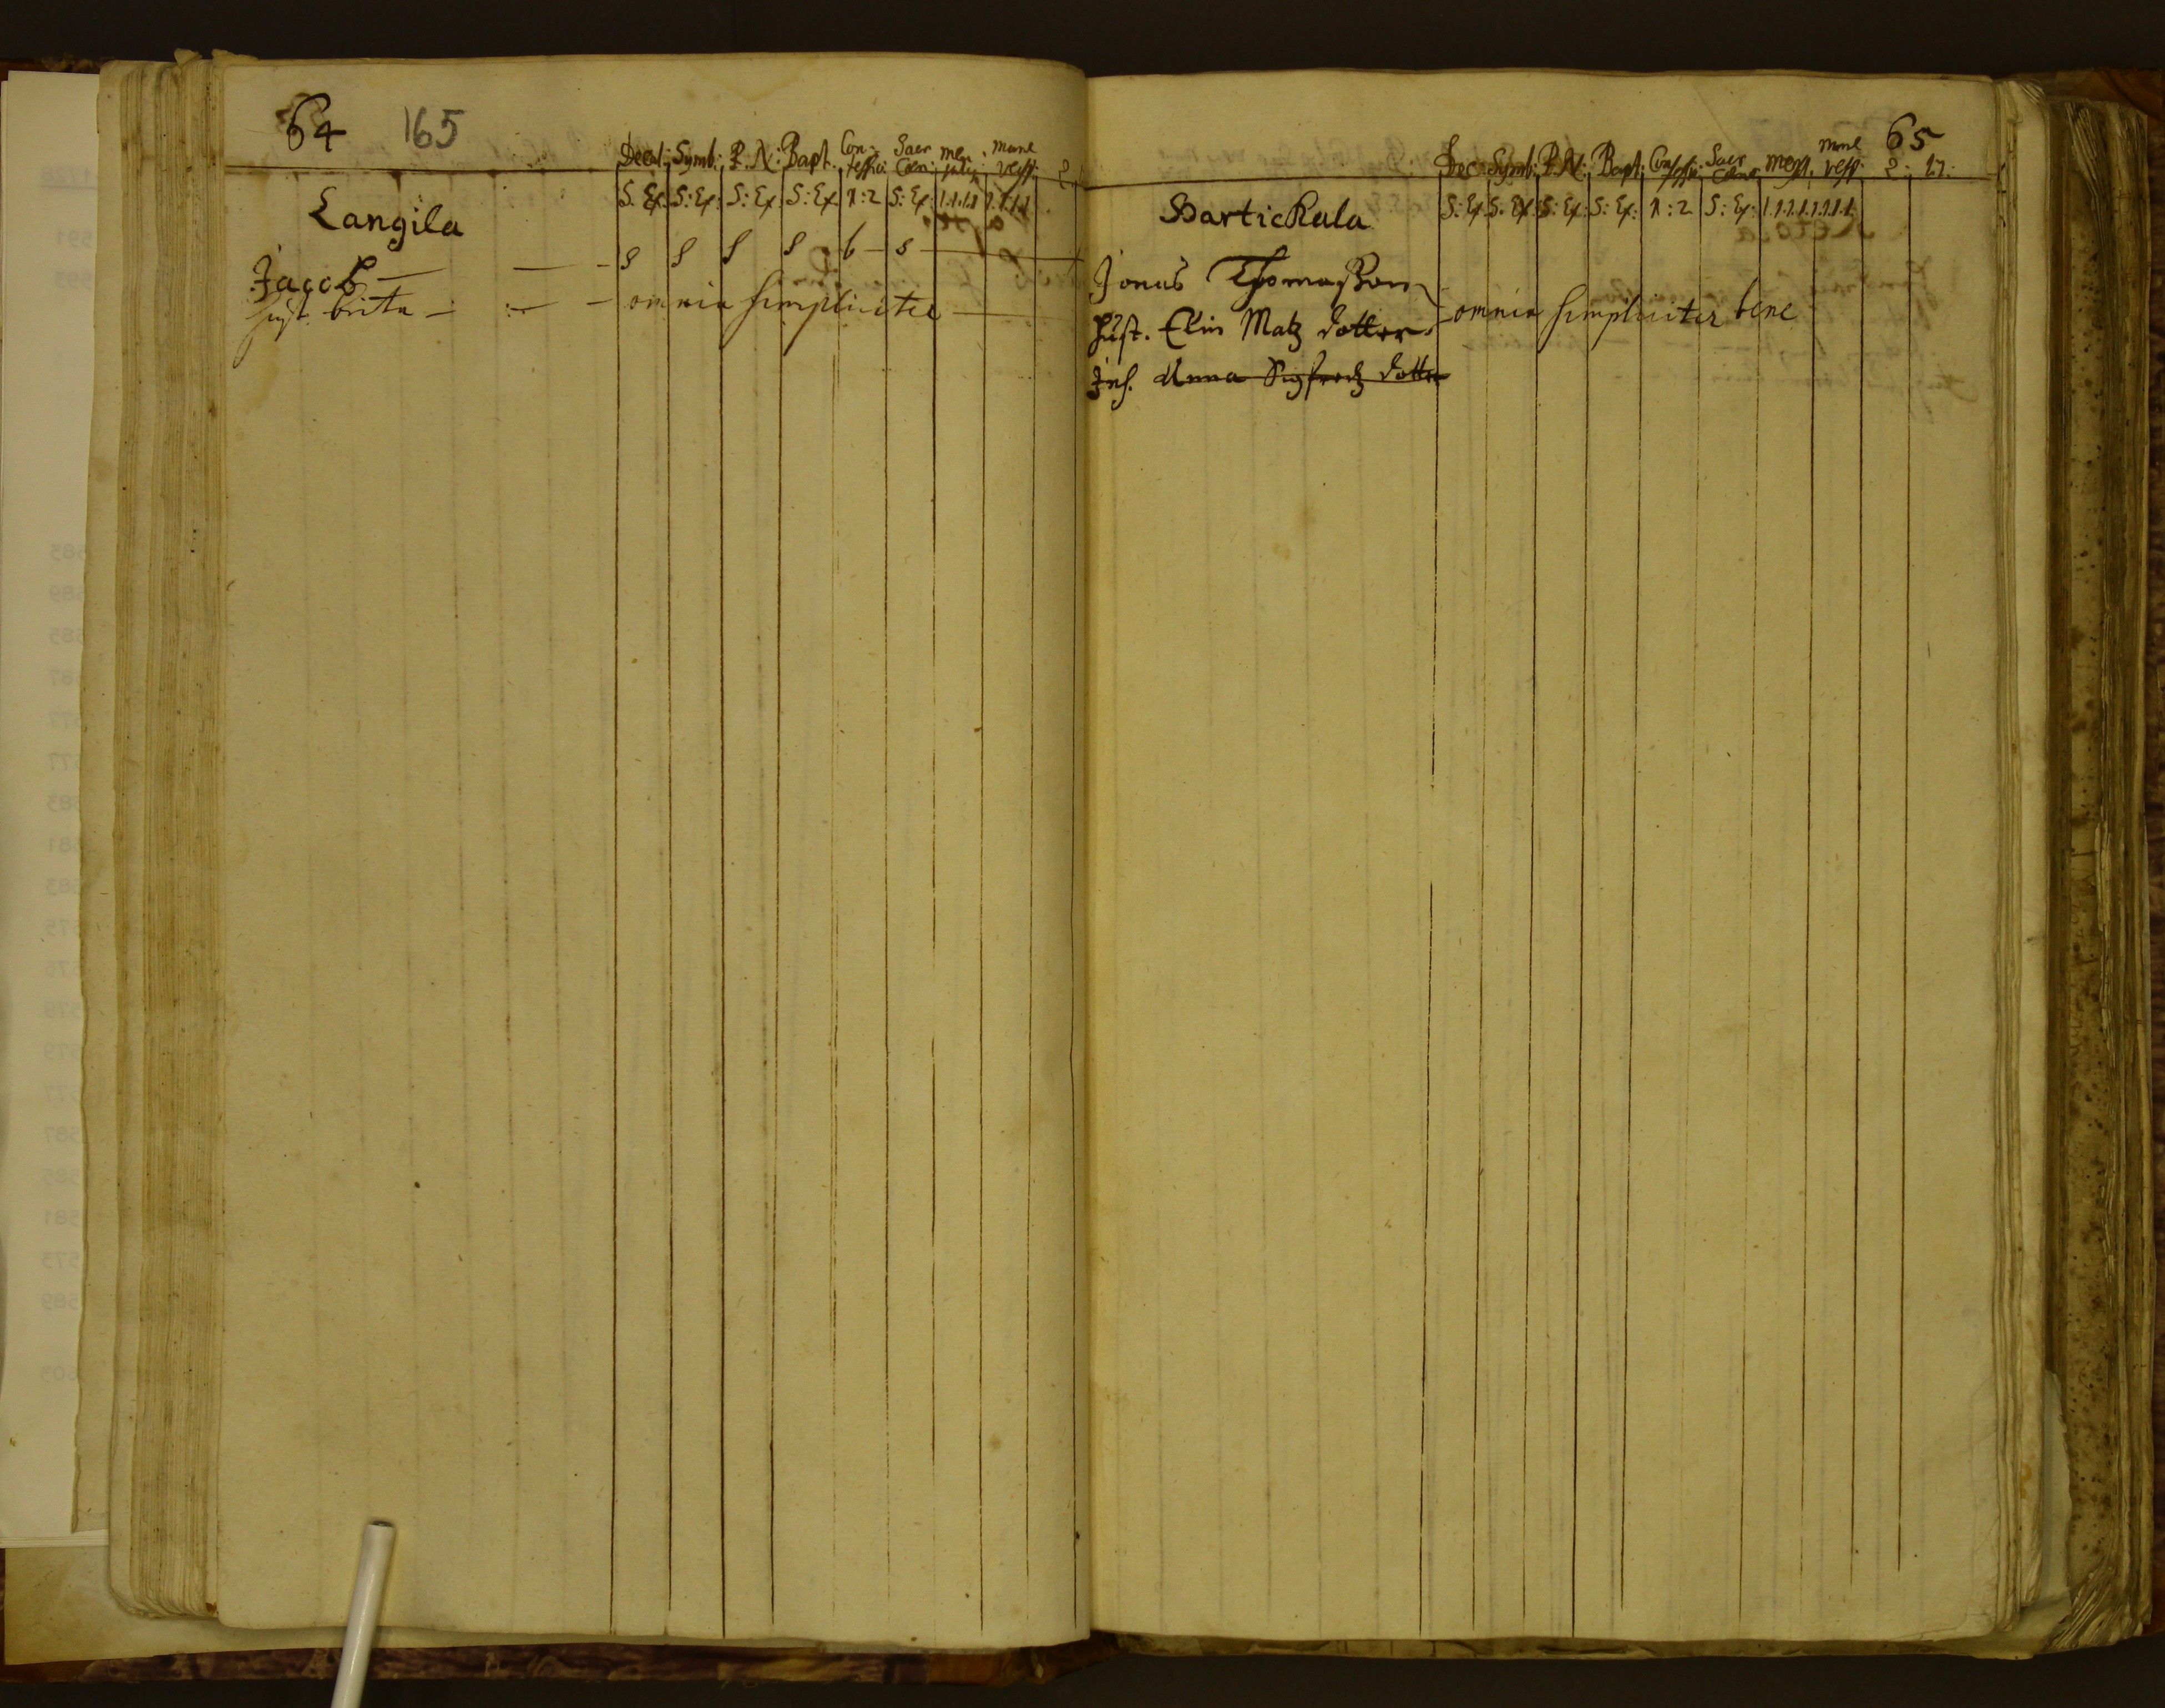 64 165
Decal: Symb: P. N: Bapt. Con- Sacr mane
fessio: Cœn: vesp: 2
S. Ex. S: Ex: S: Ex S: Ex 1:2 S: Ex: 1.1.1.1 1.1.1.1
Langila
Jacob — — - s s s s b - s
hust. brita - - - omnia simpliciter
65
Dec Symb: P. N: Bapt: Confessio: Sacr Cœna mesp. mane vesp. 2: 17:
S: Ex S. Ex S: Ex: S: Ex: 1:2 S: Ex: 1.1.1.1.1.1.1.
Bartickala
Jonas Thomasson
hust. Elin Matz dotter omnia simpliciter bene
Inh. Anna Sigfredz dotter